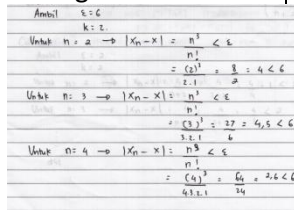 Ambil ε = 6
k = 2.
Untuk n = 2 → |Xn - X| = n³/n! < ε
= (2)³/2.1 = 8/2 = 4 < 6
Untuk n = 3 → |Xn - X| = n³/n! < ε
= (3)³/3.2.1 = 27/6 = 4,5 < 6
Untuk n = 4 → |Xn - X| = n³/n! < ε
= (4)³/4.3.2.1 = 64/24 = 2,6 < 6